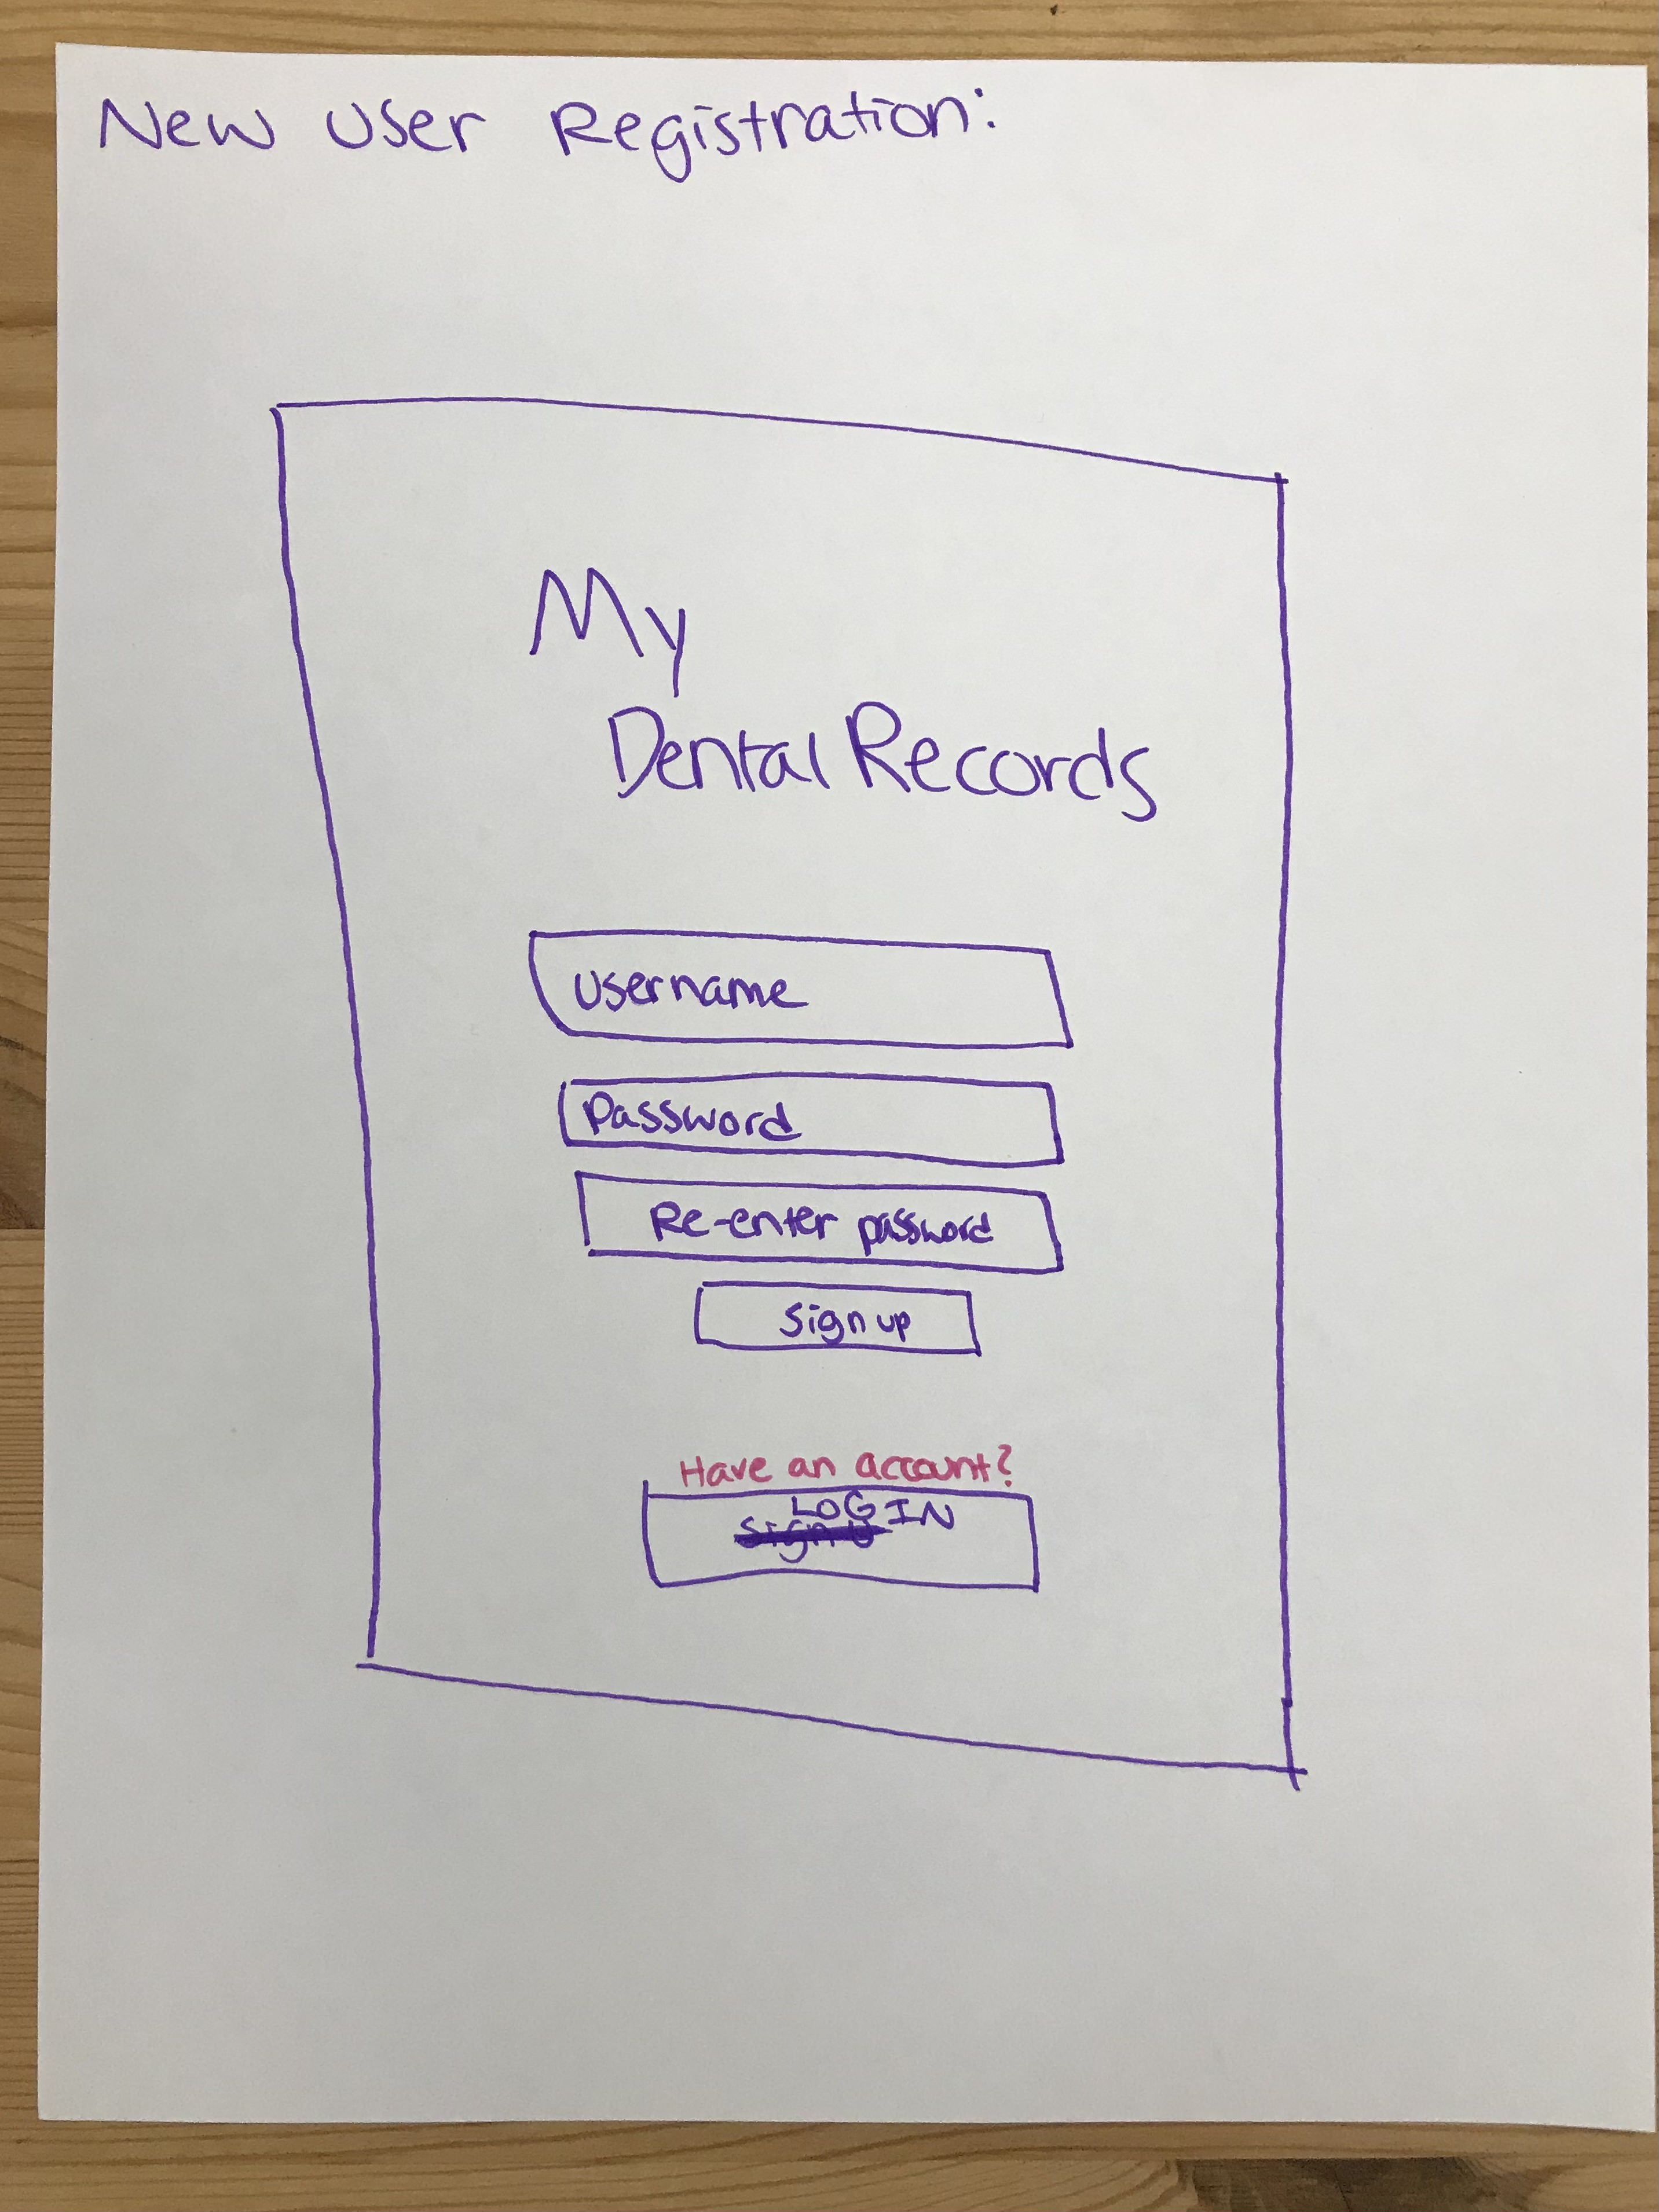 New User Registration:
My
Dental Records
Username
Password
Re-enter password
Sign up
Have an account?
LOGIN
Sign U